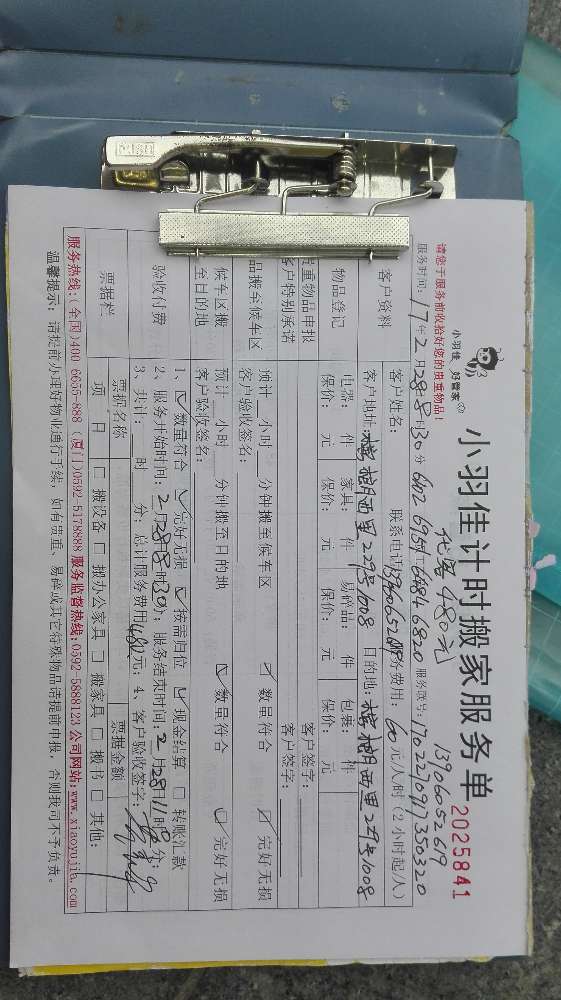 小羽佳 好管家
小羽佳计时搬家服务单
2025841
请您于服务前收拾好您的贵重物品!
代收480元
13906052619
服务时间:17年2月28日8时30分
服务联号:1702270917350320
客户资料
客户姓名:
联系电话 13906052619
服务费用:60元/人/时(2小时起/人)
客户地址:槟榔西里229号1008
目的地:槟榔西里229号1008
物品登记
电器: 件 家具: 件 易碎品: 件 包裹: 件
保价: 元 保价: 元 保价: 元 保价: 元
贵重物品申报
客户特别承诺
客户签字:
品搬至候车区
预计 小时 分钟搬至候车区 数量符合 完好无损
客户验收签名:
客户签字:
候车区搬
至目的地
预计 小时 分钟搬至目的地 数量符合 完好无损
客户验收签名:
验收付费
1、数量符合 完好无损 按需归位 现金结算 转账汇款
2、服务开始时间:2月28日8时30分;服务结束时间:2月28日11时 分;
3、共计: 时 分;总计服务费用480元;4、客户验收签字:
票据栏
票据名称
票据金额
项 目
搬设备 搬办公家具 搬家具 搬书 其他:
服务热线:(全国)400-6655-888 (厦门)0592-5178888 服务监督热线:0592-5888123 公司网站:www.xiaoyujia.com
温馨提示:请提前办理好物业通行手续,如有贵重、易碎或其它特殊物品请提前申报,否则我司不予负责。